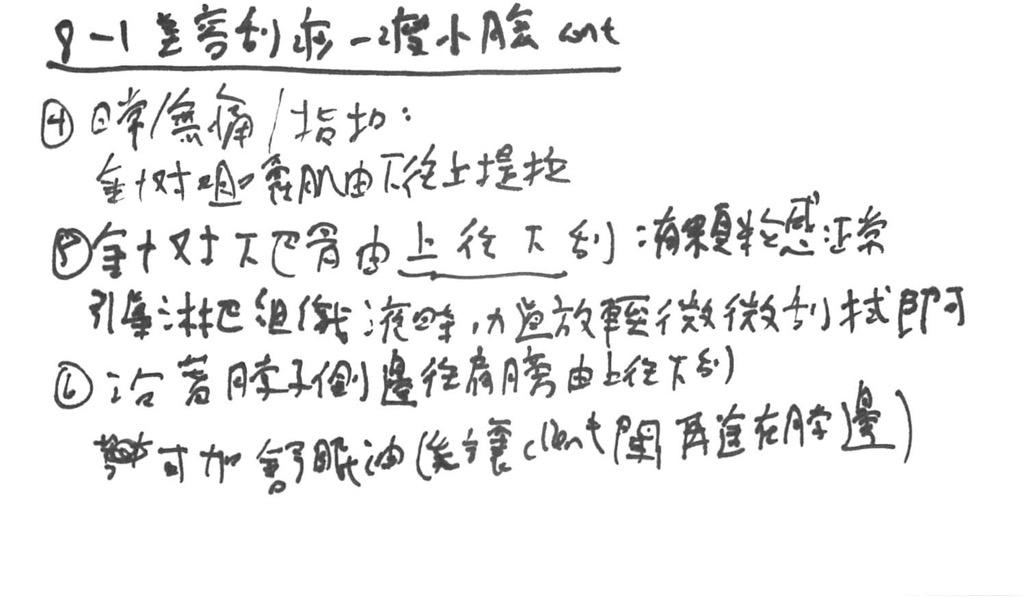 8-1 美容刮痧-瘦小臉 cont
④日常/無痛/指切:
針对咀嚼肌由下往上提拉
⑤針对下巴骨由上往下刮:有顆粒感正常
引集淋巴組織液時,力道放輕微微刮拭即可
⑥沿著脖子側邊往肩膀由上往下刮
可加舒眠油(先讓client聞再塗在脖邊)